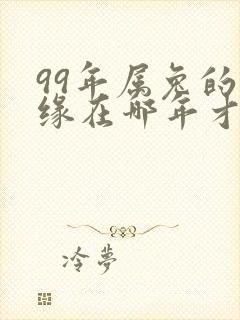 99年属兔的
缘在哪年才
冷夢